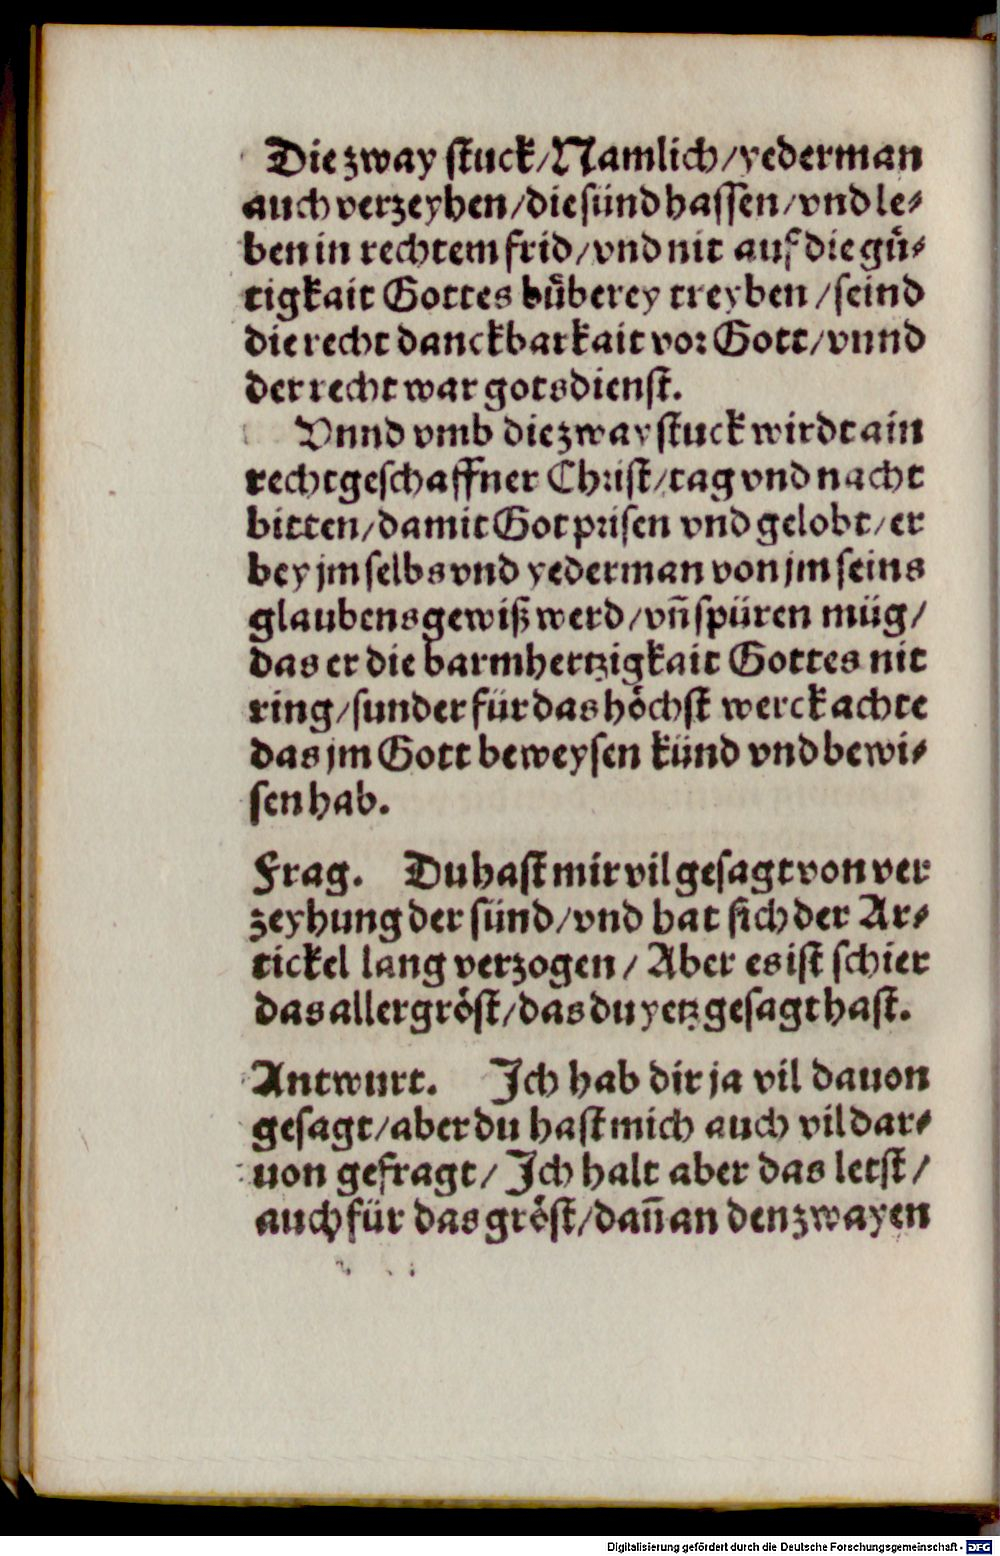 Die zway stuck/Namlich/yederman
auch verzeyhen/die sünd hassen/vnd le⸗
ben in rechtem frid/vnd nit auf die gů⸗
tigkait Gottes bůberey treyben/seind
die recht danckbarkait vor Gott/vnnd
der recht war gotsdienst.
Vnnd vmb die zway stuck wirdt ain
rechtgeschaffner Christ/tag vnd nacht
bitten/damit Got prisen vnd gelobt/er
bey jm selbs vnd yederman von jm seins
glaubens gewiß werd/vñ spüren müg/
das er die barmhertzigkait Gottes nit
ring/sunder für das höchst werck achte
das jm Gott beweysen künd vnd bewi⸗
sen hab.
Frag. Du hast mir vil gesagt von ver
zeyhung der sünd/vnd hat sich der Ar⸗
tickel lang verzogen/Aber es ist schier
das aller gröst/das du yetz gesagt hast.
Antwurt. Ich hab dir ja vil dauon
gesagt/aber du hast mich auch vil dar⸗
uon gefragt/Ich halt aber das letst/
auch für das gröst/dañ an den zwayen
Digitalisierung gefördert durch die Deutsche Forschungsgemeinschaft - DFG